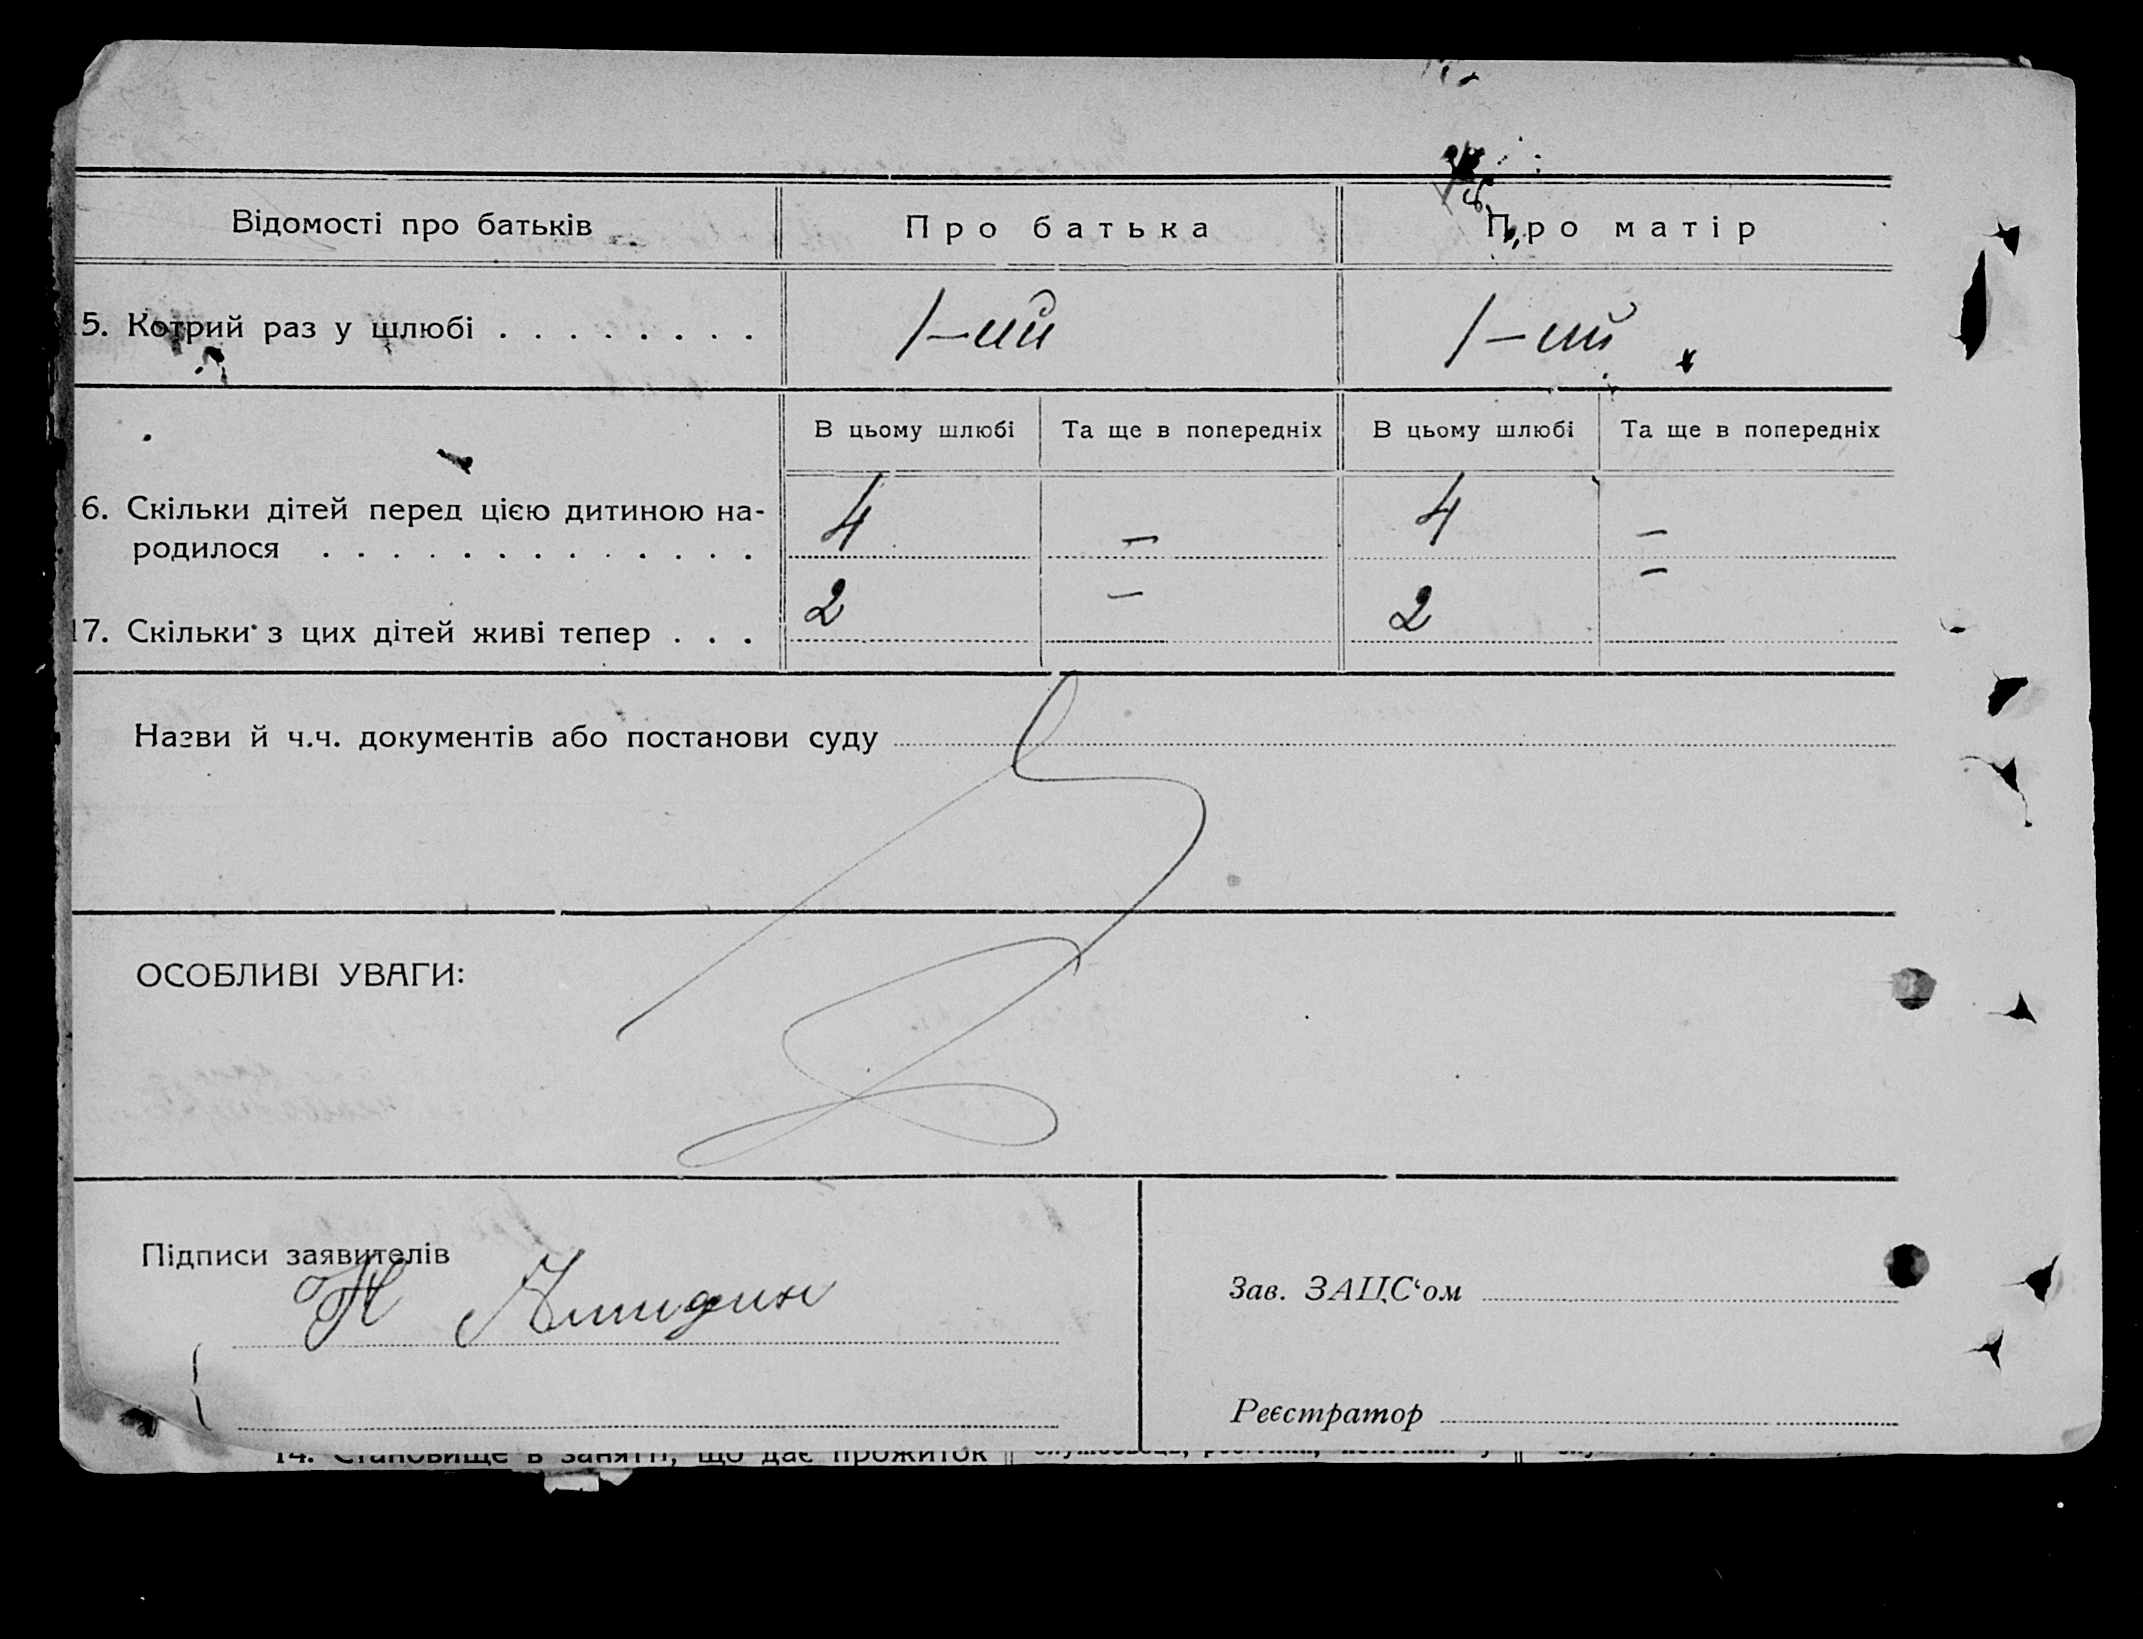 Відомості про батьків Про батька Про матір
5. Котрий раз у шлюбі . . . . . . . . 1-ий 1-ий
В цьому шлюбі Та ще в попередніх В цьому шлюбі Та ще в попередніх
6. Скільки дітей перед цією дитиною на- 4 — 4 —
родилося . . . . . . . . . . . . .
17. Скільки з цих дітей живі тепер . . . 2 — 2 —
Назви й ч.ч. документів або постанови суду
ОСОБЛИВІ УВАГИ:
Підписи заявителів
Н
Зав. ЗАЦС‘ом
Реєстратор
14. Становище в занятті, що дає прожиток